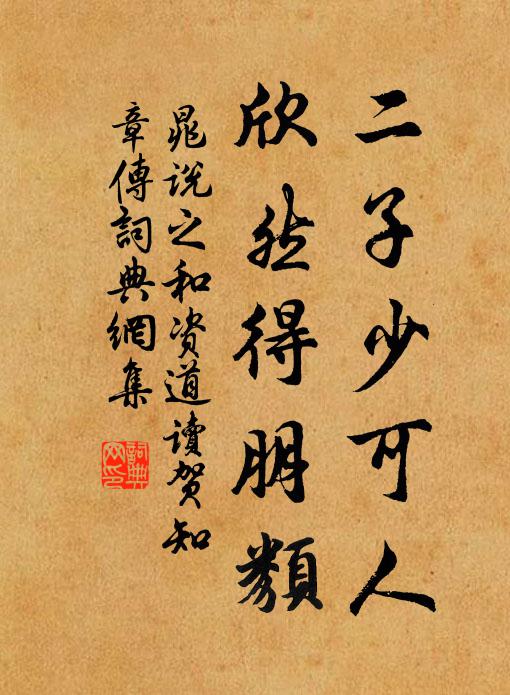 二子少可人
欣然得朋類
晁说之和资道讀贺知
章傳詞典網集
詞典網印